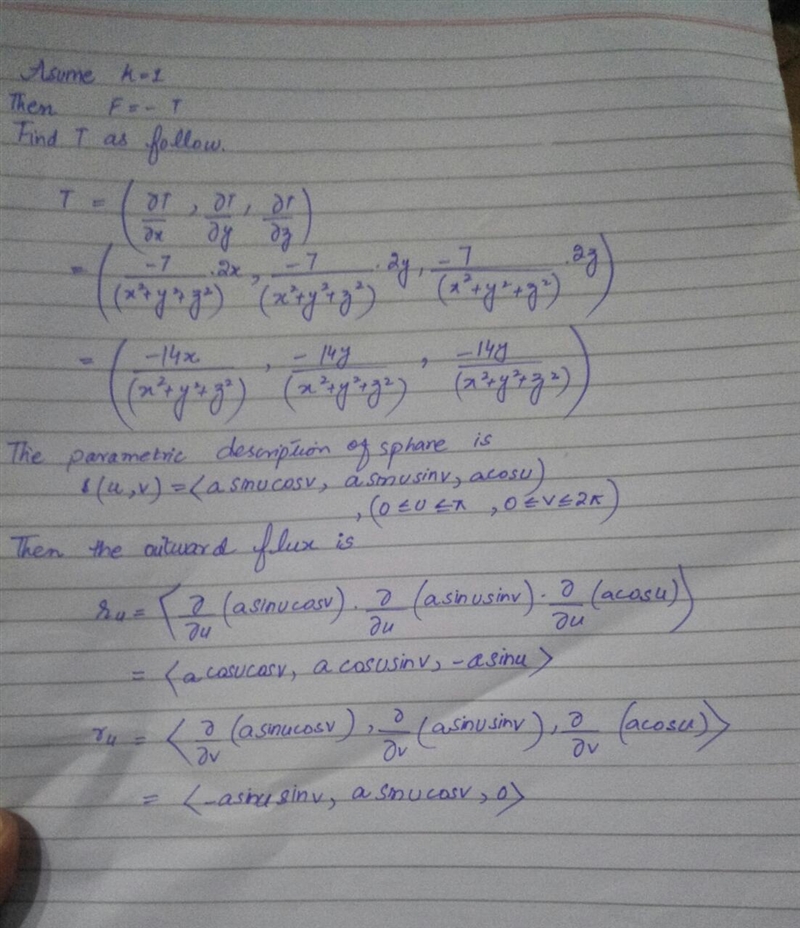 Asume k=1
Then F = - T
Find T as follow.
T = (∂T/∂x , ∂T/∂y , ∂T/∂z)
= (-7/(x²+y²+z²) .2x, -7/(x²+y²+z²) .2y, -7/(x²+y²+z²) .2z)
= (-14x/(x²+y²+z²) , -14y/(x²+y²+z²) , -14y/(x²+y²+z²))
The parametric description of sphare is
r(u,v) = ⟨a sinucosv, a sinusinv, acosu⟩
, (0≤u≤π , 0≤v≤2π)
Then the outward flux is
r_u = ⟨∂/∂u (asinucosv) . ∂/∂u (asinusinv) . ∂/∂u (acosu)⟩
= ⟨a cosucosv, a cosusinv, -asinu⟩
r_u = ⟨∂/∂v (asinucosv) , ∂/∂v (asinusinv) , ∂/∂v (acosu)⟩
= ⟨-asinusinv, a sinucosv, 0⟩